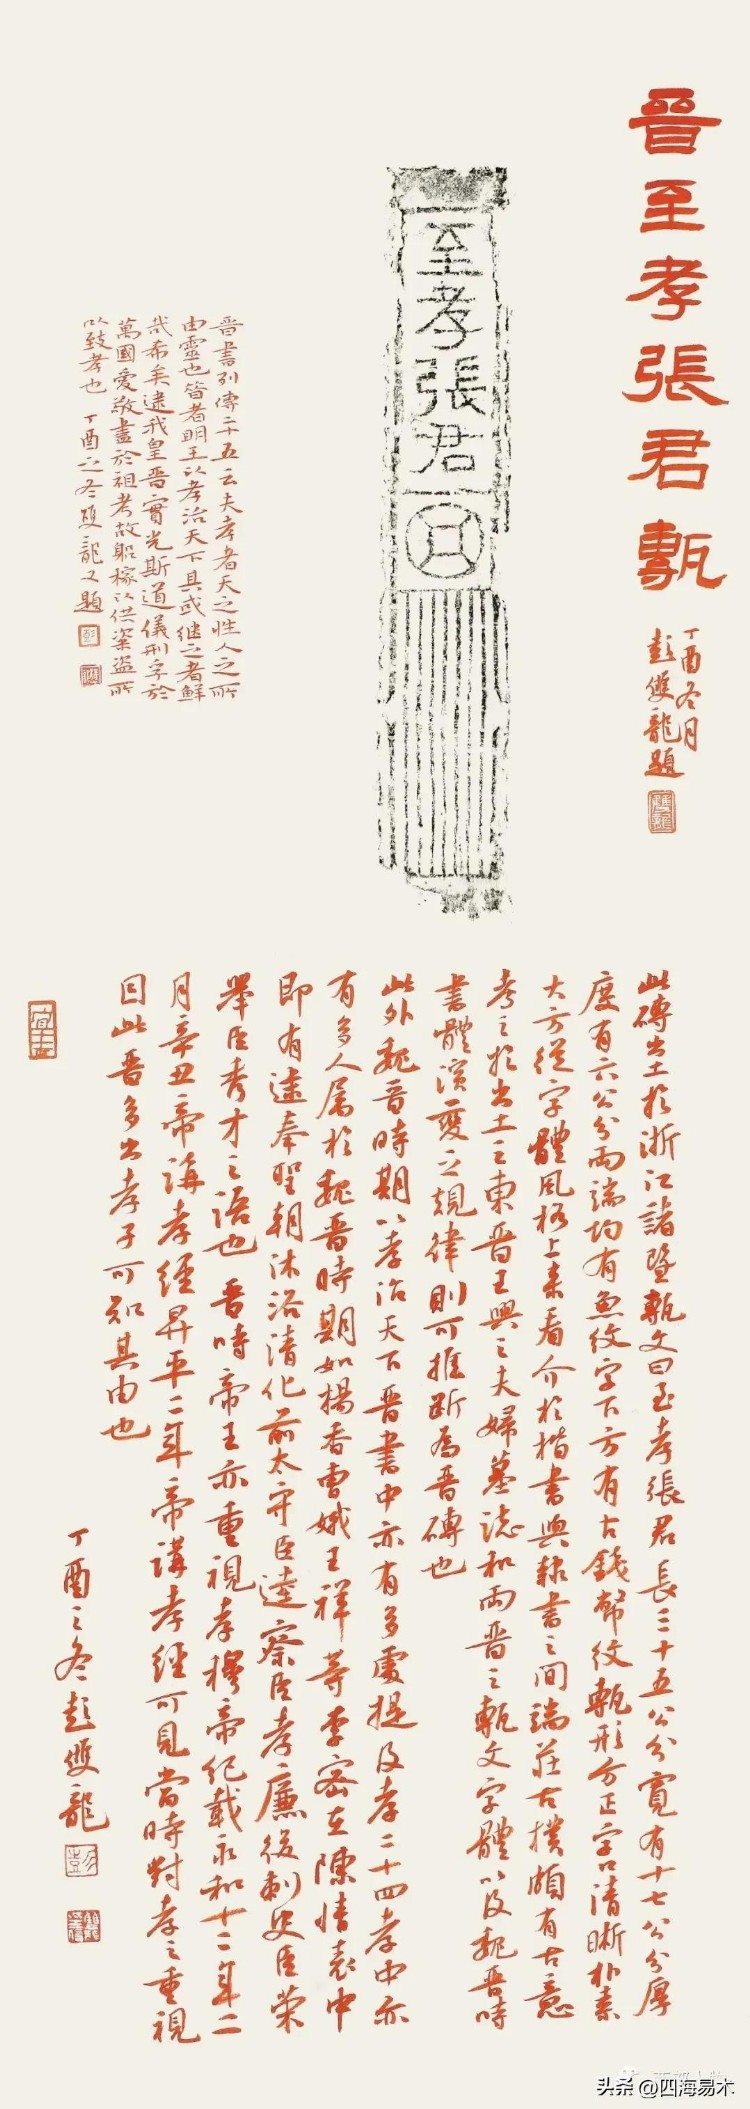 晉至孝張君甎
丁酉冬月
彭雙龍題
至孝張君
晉書列傳二十五云夫孝者天之性人之所
由靈也昔者明王以孝治天下其或继之者鮮
哉希矣逮我皇晉實光斯道儀刑孚於
萬國愛敬盡於祖考故躬稼以供粢盛所
以致孝也 丁酉之冬雙龍又題
此磚出土於浙江諸暨甎文曰至孝張君長三十五公分寬有十七公分厚
度有六公分兩端均有魚紋字下方有古錢幣纹甎形方正字口清晰朴素
大方從字體風格上来看介於楷書與隸書之间端莊古樸頗有古意
考之於出土之東晋王興之夫婦墓誌和两晋之甎文字體以及魏晋時
書體演變之規律則可推斷為晋磚也
此外魏晋時期以孝治天下晋書中亦有多處提及孝二十四孝中亦
有多人属於魏晋時期如楊香曹娥王祥等李密在陳情表中
即有逮奉聖朝沐浴清化前太守臣逵察臣孝廉後刺史臣榮
舉臣秀才之語也晋時帝王亦重視孝穆帝纪載永和十二年二
月辛丑帝講孝經昇平二年帝講孝經可見當時對孝之重視
因此晋多出孝子可知其由也
丁酉之冬彭雙龍
头条@四海易术